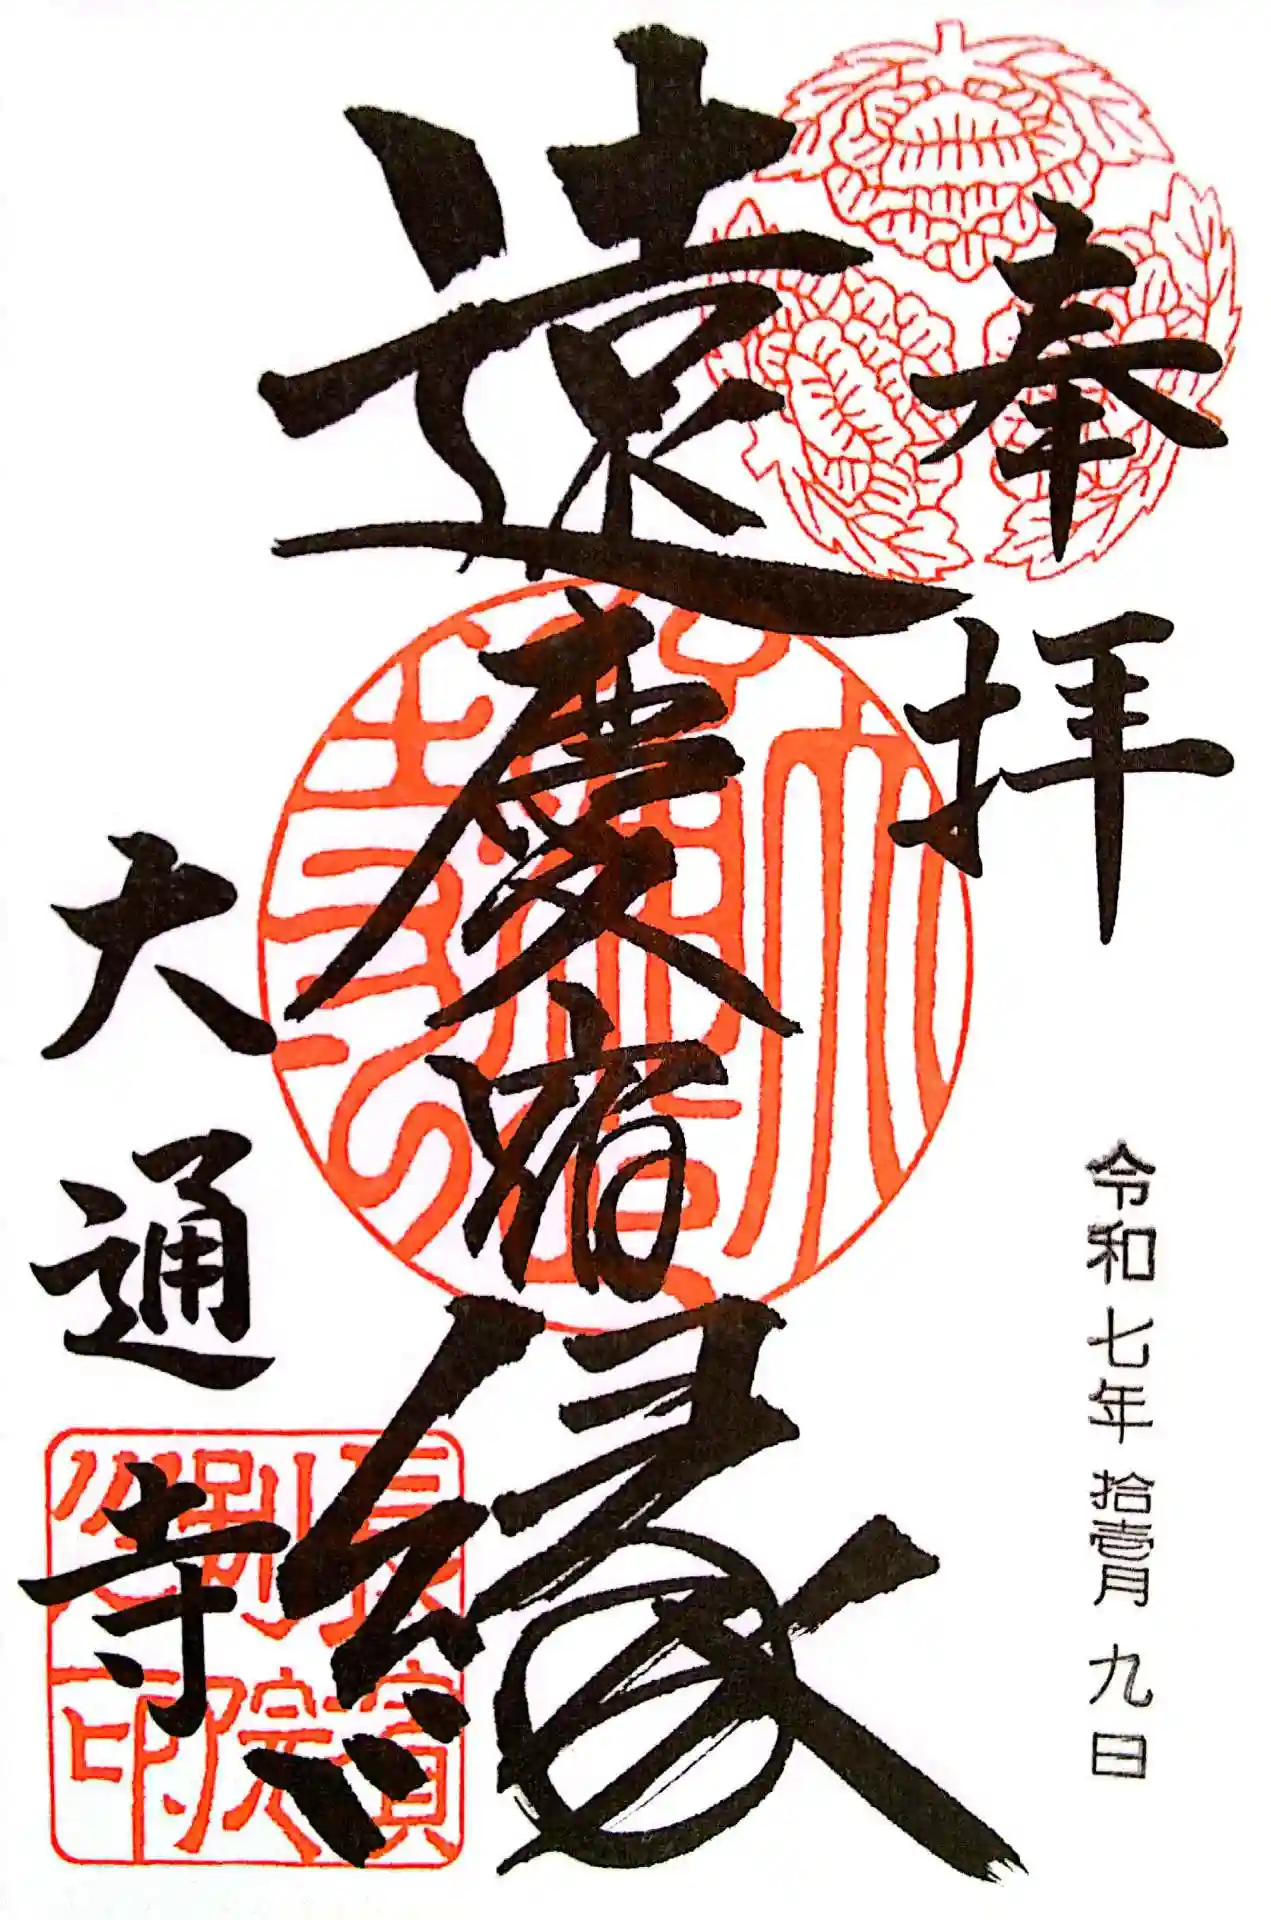 奉拝
令和七年拾壹月九日
遠慶宿縁
大通寺
長濱別院之印